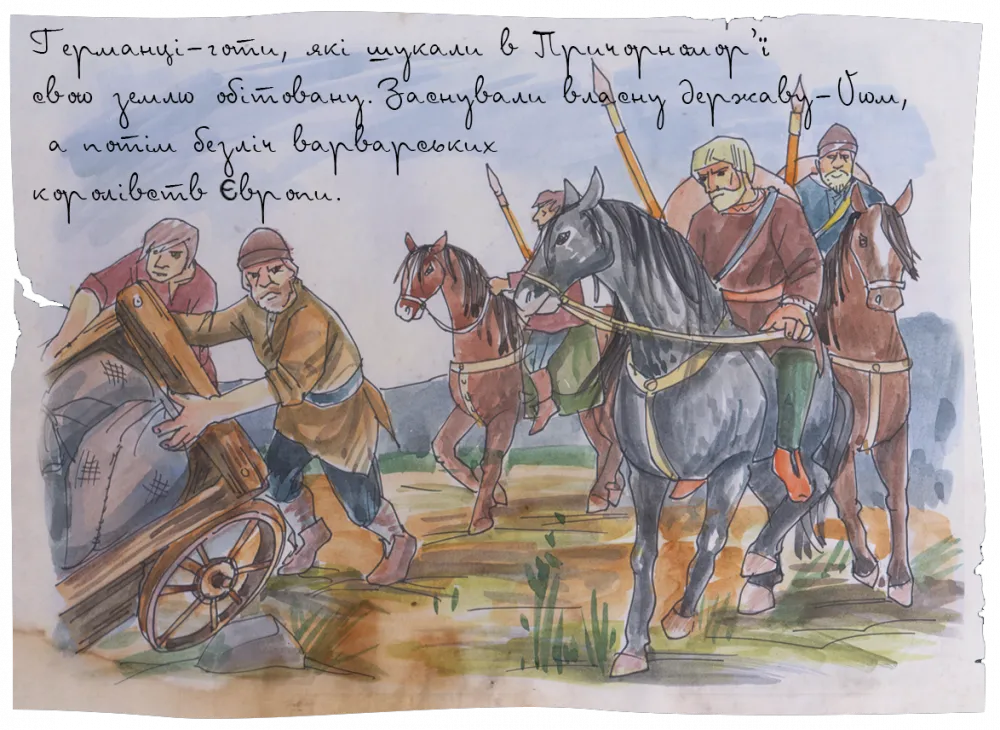 Германці-готи, які шукали в Причорномор'ї
свою землю обітовану. Заснували власну державу-Оюм,
а потім безліч варварських
королівств Європи.